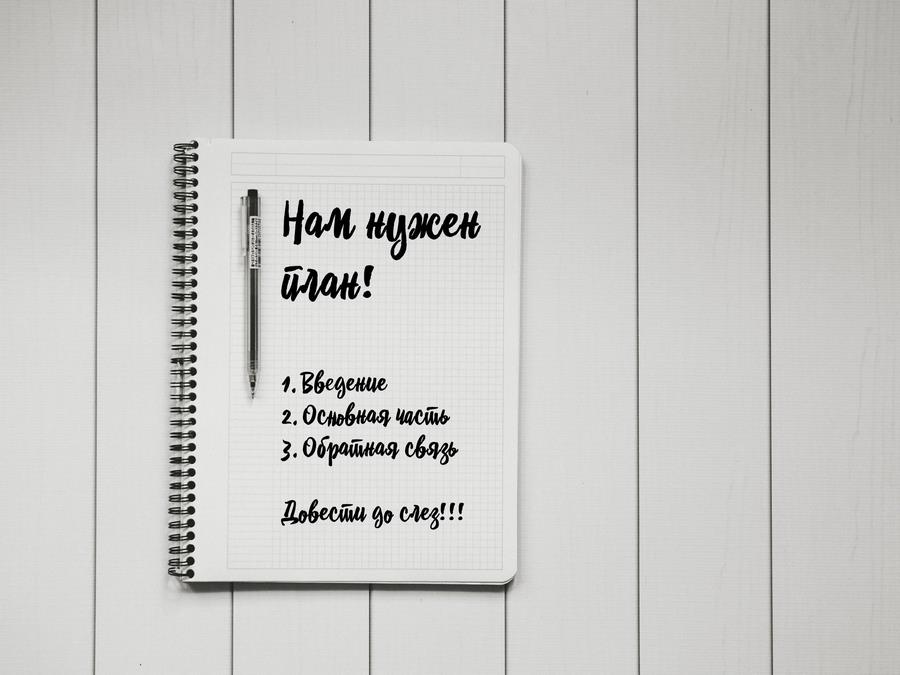 Нам нужен
план!
1. Введение
2. Основная часть
3. Обратная связь
Довести до слез!!!